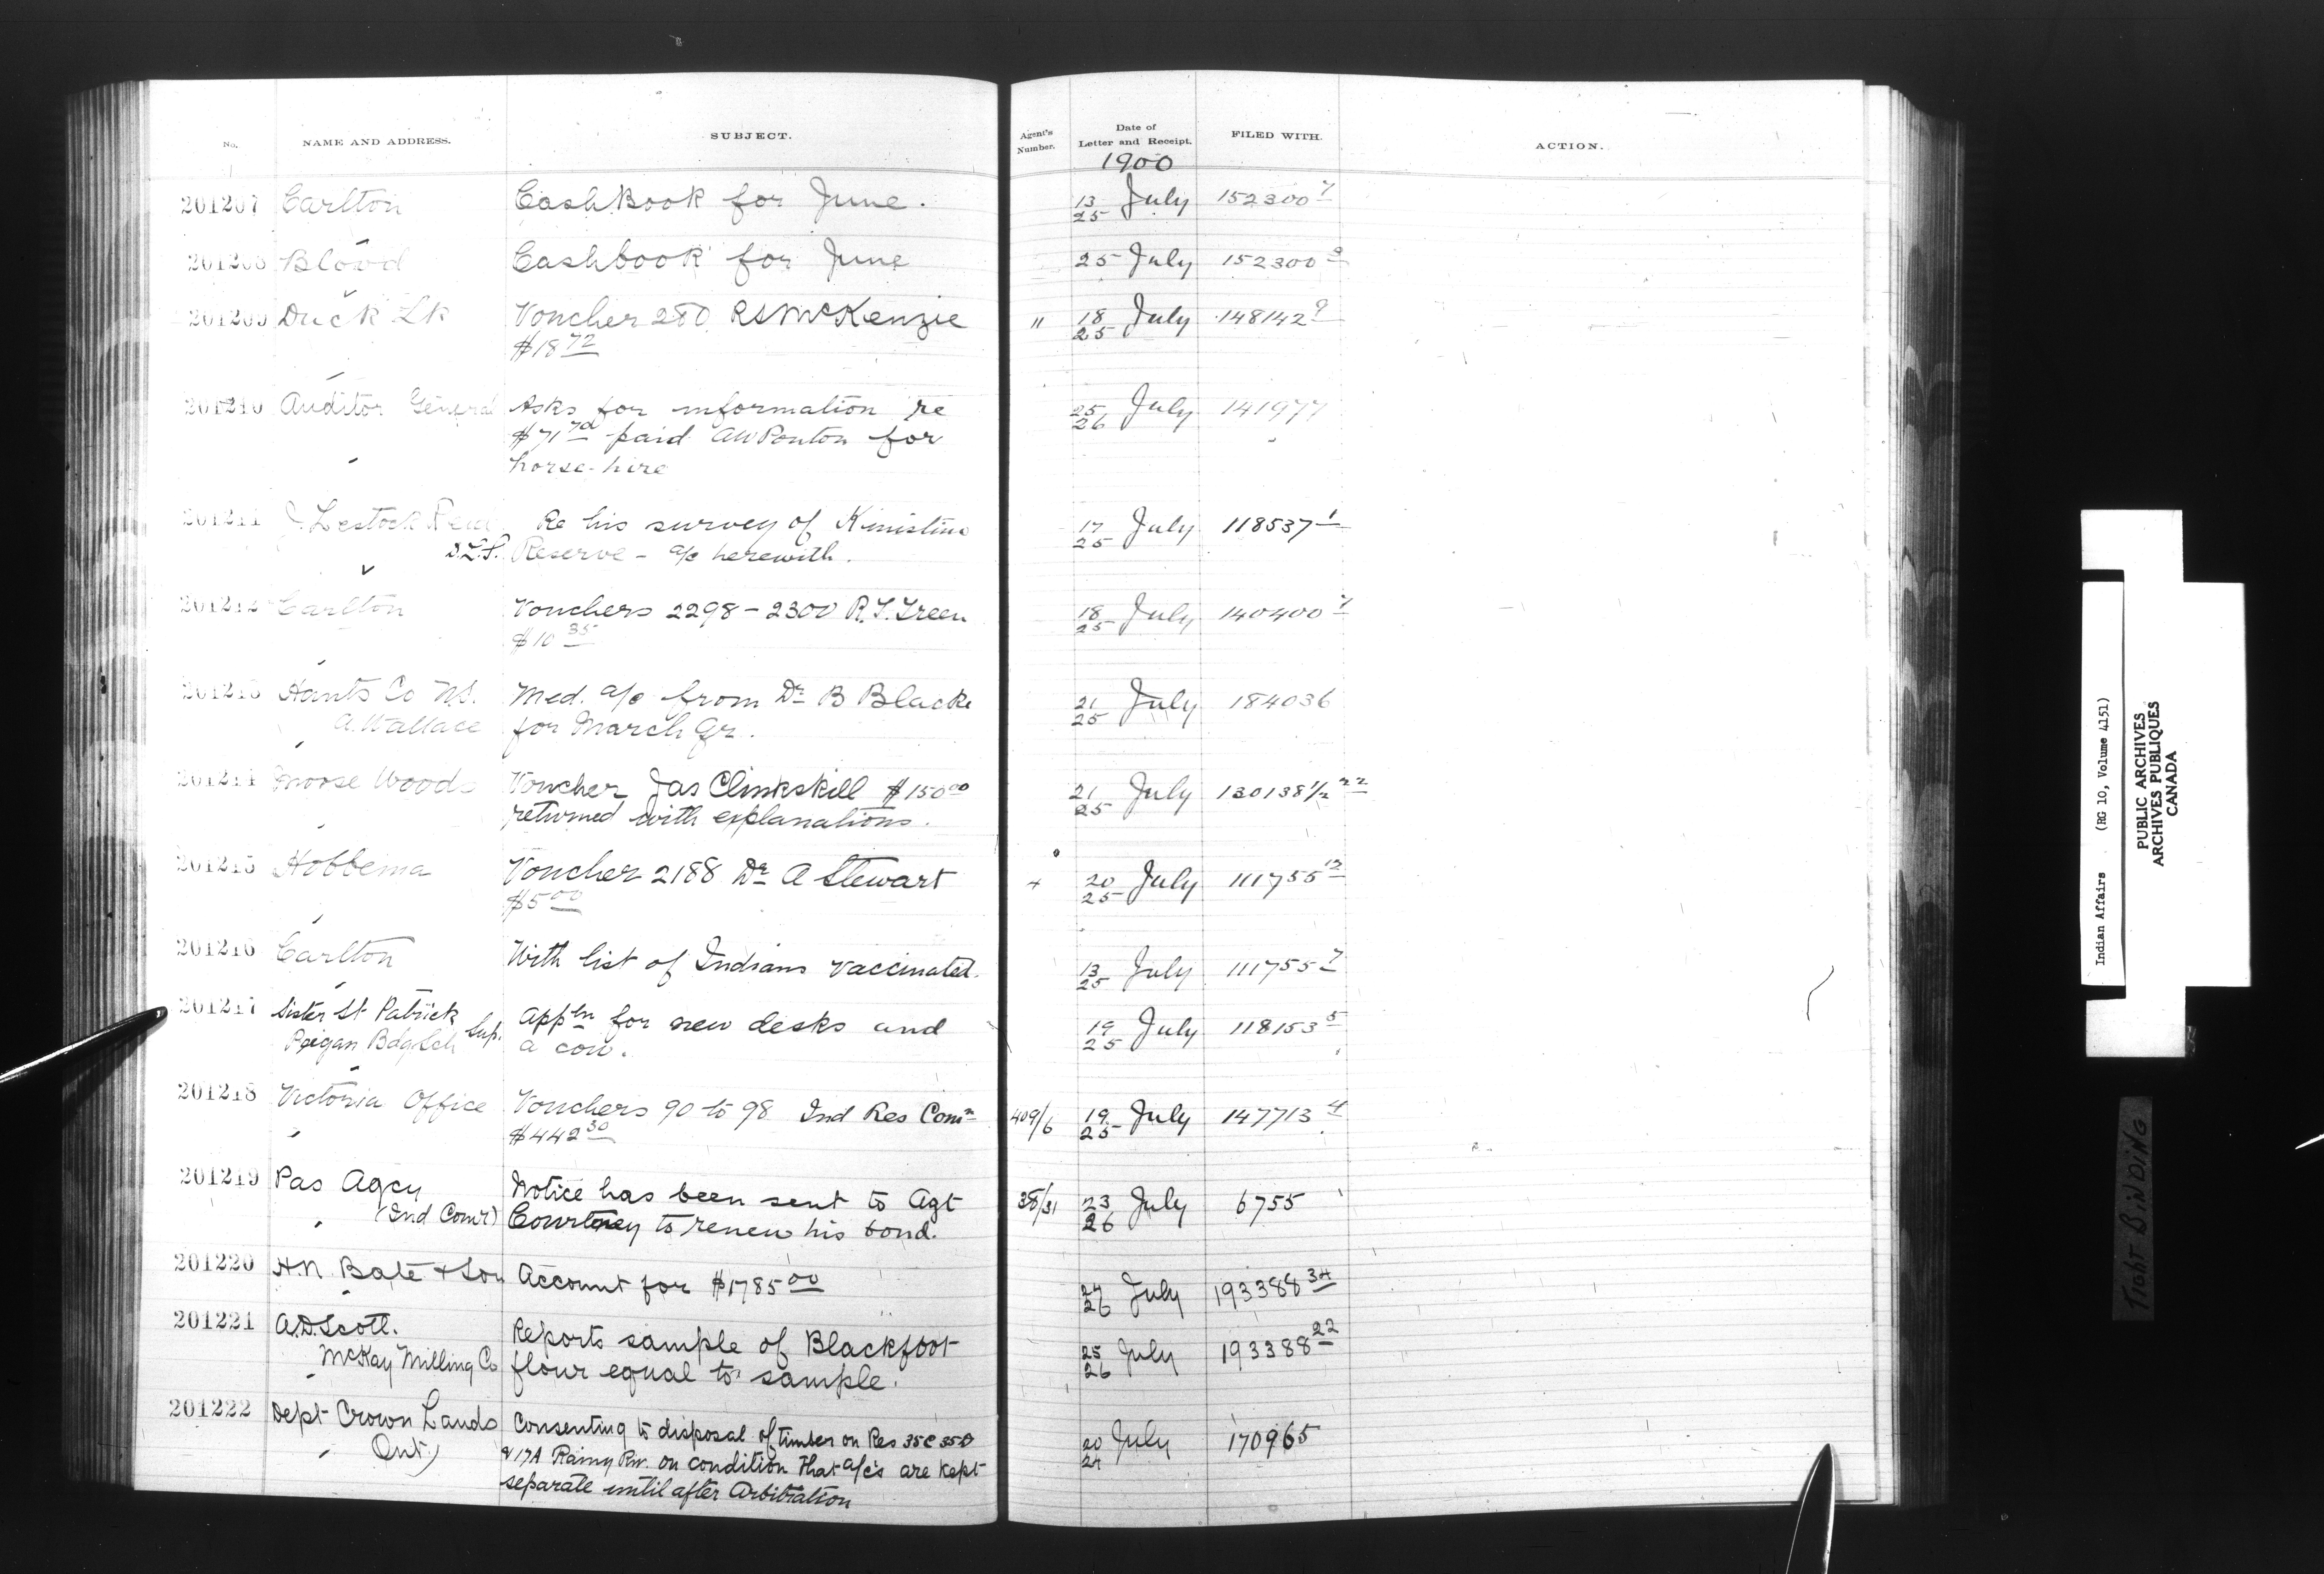 No. NAME AND ADDRESS. SUBJECT. Agent's Number. Date of Letter and Receipt. FILED WITH. ACTION.
1900
201207 Carlton CashBook for June. 13/25 July 152300 7
201208 Blood Cashbook for June 25 July 152300
201209 Duck Lk Voucher 280 RSMcKenzie " 18/25 July 148142 9
$18 72
201210 Auditor General Asks for information re 25/26 July 141977
$71 70 paid AWPonton for
horse-hire
201211 J. Lestock Reid Re his survey of Kinistino 17/25 July 118537 1
D.L.S. Reserve - a/c herewith.
201212 Carlton Vouchers 2298 - 2300 R.T. Green 18/25 July 140400 7
$10 35
201213 Hants Co N.S. Med. a/c from Dr B Black 21/25 July 184036
A. Wallace for March Qr.
201214 Moose Woods Voucher Jas Clinkskill $150 00 21/25 July 130138 1/2 22
returned with explanations.
201215 Hobbema Voucher 2188 Dr A Stewart 20/25 July 111755 12
$5 00
201216 Carlton With list of Indians vaccinated. 13/25 July 111755 7
201217 Sister St Patrick Sup. Appln for new desks and 19/25 July 118153 5
Peigan Bdg Sch a cow.
201218 Victoria Office Vouchers 90 to 98 Ind Res Comn 409/6 19/25 July 147713 4
$442 30
201219 Pas Agcy Notice has been sent to Agt 38/31 23/26 July 6755
(Ind Comr) Courtney to renew his bond.
201220 H.N. Bate & Son Account for $1785 00 24/26 July 193388 34
201221 A.D. Scott. Reports sample of Blackfoot 25/26 July 193388 22
McKay Milling Co flour equal to sample.
201222 Dept Crown Lands Consenting to disposal of timber on Res 35C 35D 20/24 July 170965
Ont.) & 17A Rainy Riv. on condition that a/c's are kept
separate until after Arbitration
Indian Affairs (RG 10, Volume 4151)
PUBLIC ARCHIVES
ARCHIVES PUBLIQUES
CANADA
TIGHT BINDING